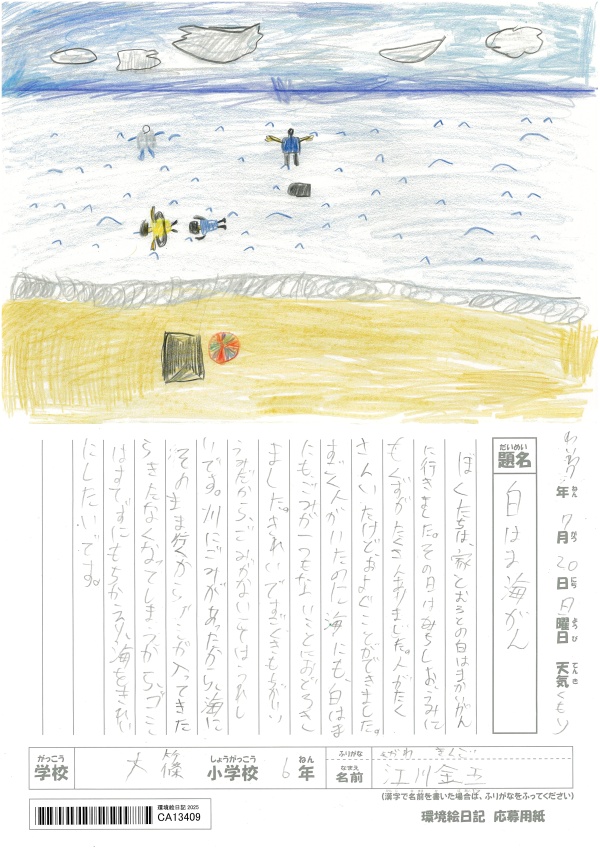 れいわ7年 7月 20日 月曜日 天気 くもり
ねん がつ にち ようび てんき
だいめい
題名 白はま海がん
ぼくたちは、家ぞくとおろとの白はまかいがん
に行きました。その日はちしお、うみに
もくずがたくさんありました。人がたく
さんいたけど、およぐことができました。
すごく人がいたのに海にも、白はま
にも、ごみが一つもないことにおどろき
ました。きれいですごくきもちがいい
うみだから、ごみがないことはうれし
いです。川にごみがあったから、海に
そのまま行くから、ゴミが入ってきた
らきたなくなってしまうから、ゴミ
はすてずにもちかえり、海をきれい
にしたいです。
がっこう しょうがっこう ねん ふりがな えがわ きんご
学校 大篠 小学校 6年 なまえ 名前 江川金五
(漢字で名前を書いた場合は、ふりがなをふってください)
環境絵日記 2025
CA13409
環境絵日記 応募用紙